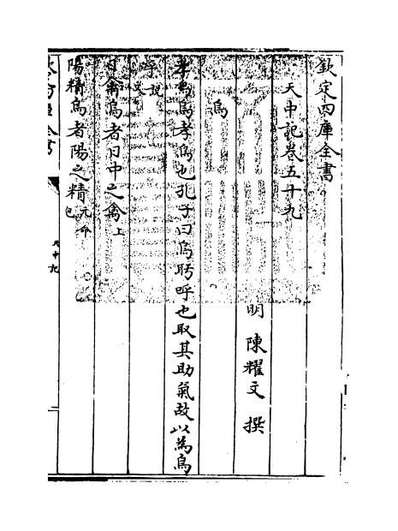 欽定四庫全書
天中記卷五十九
明 陳耀文 撰
烏
孝烏孝烏也孔子曰烏盱呼也取其助氣故以為烏
呼說文
日禽烏者日中之禽上
陽精烏者陽之精元命包